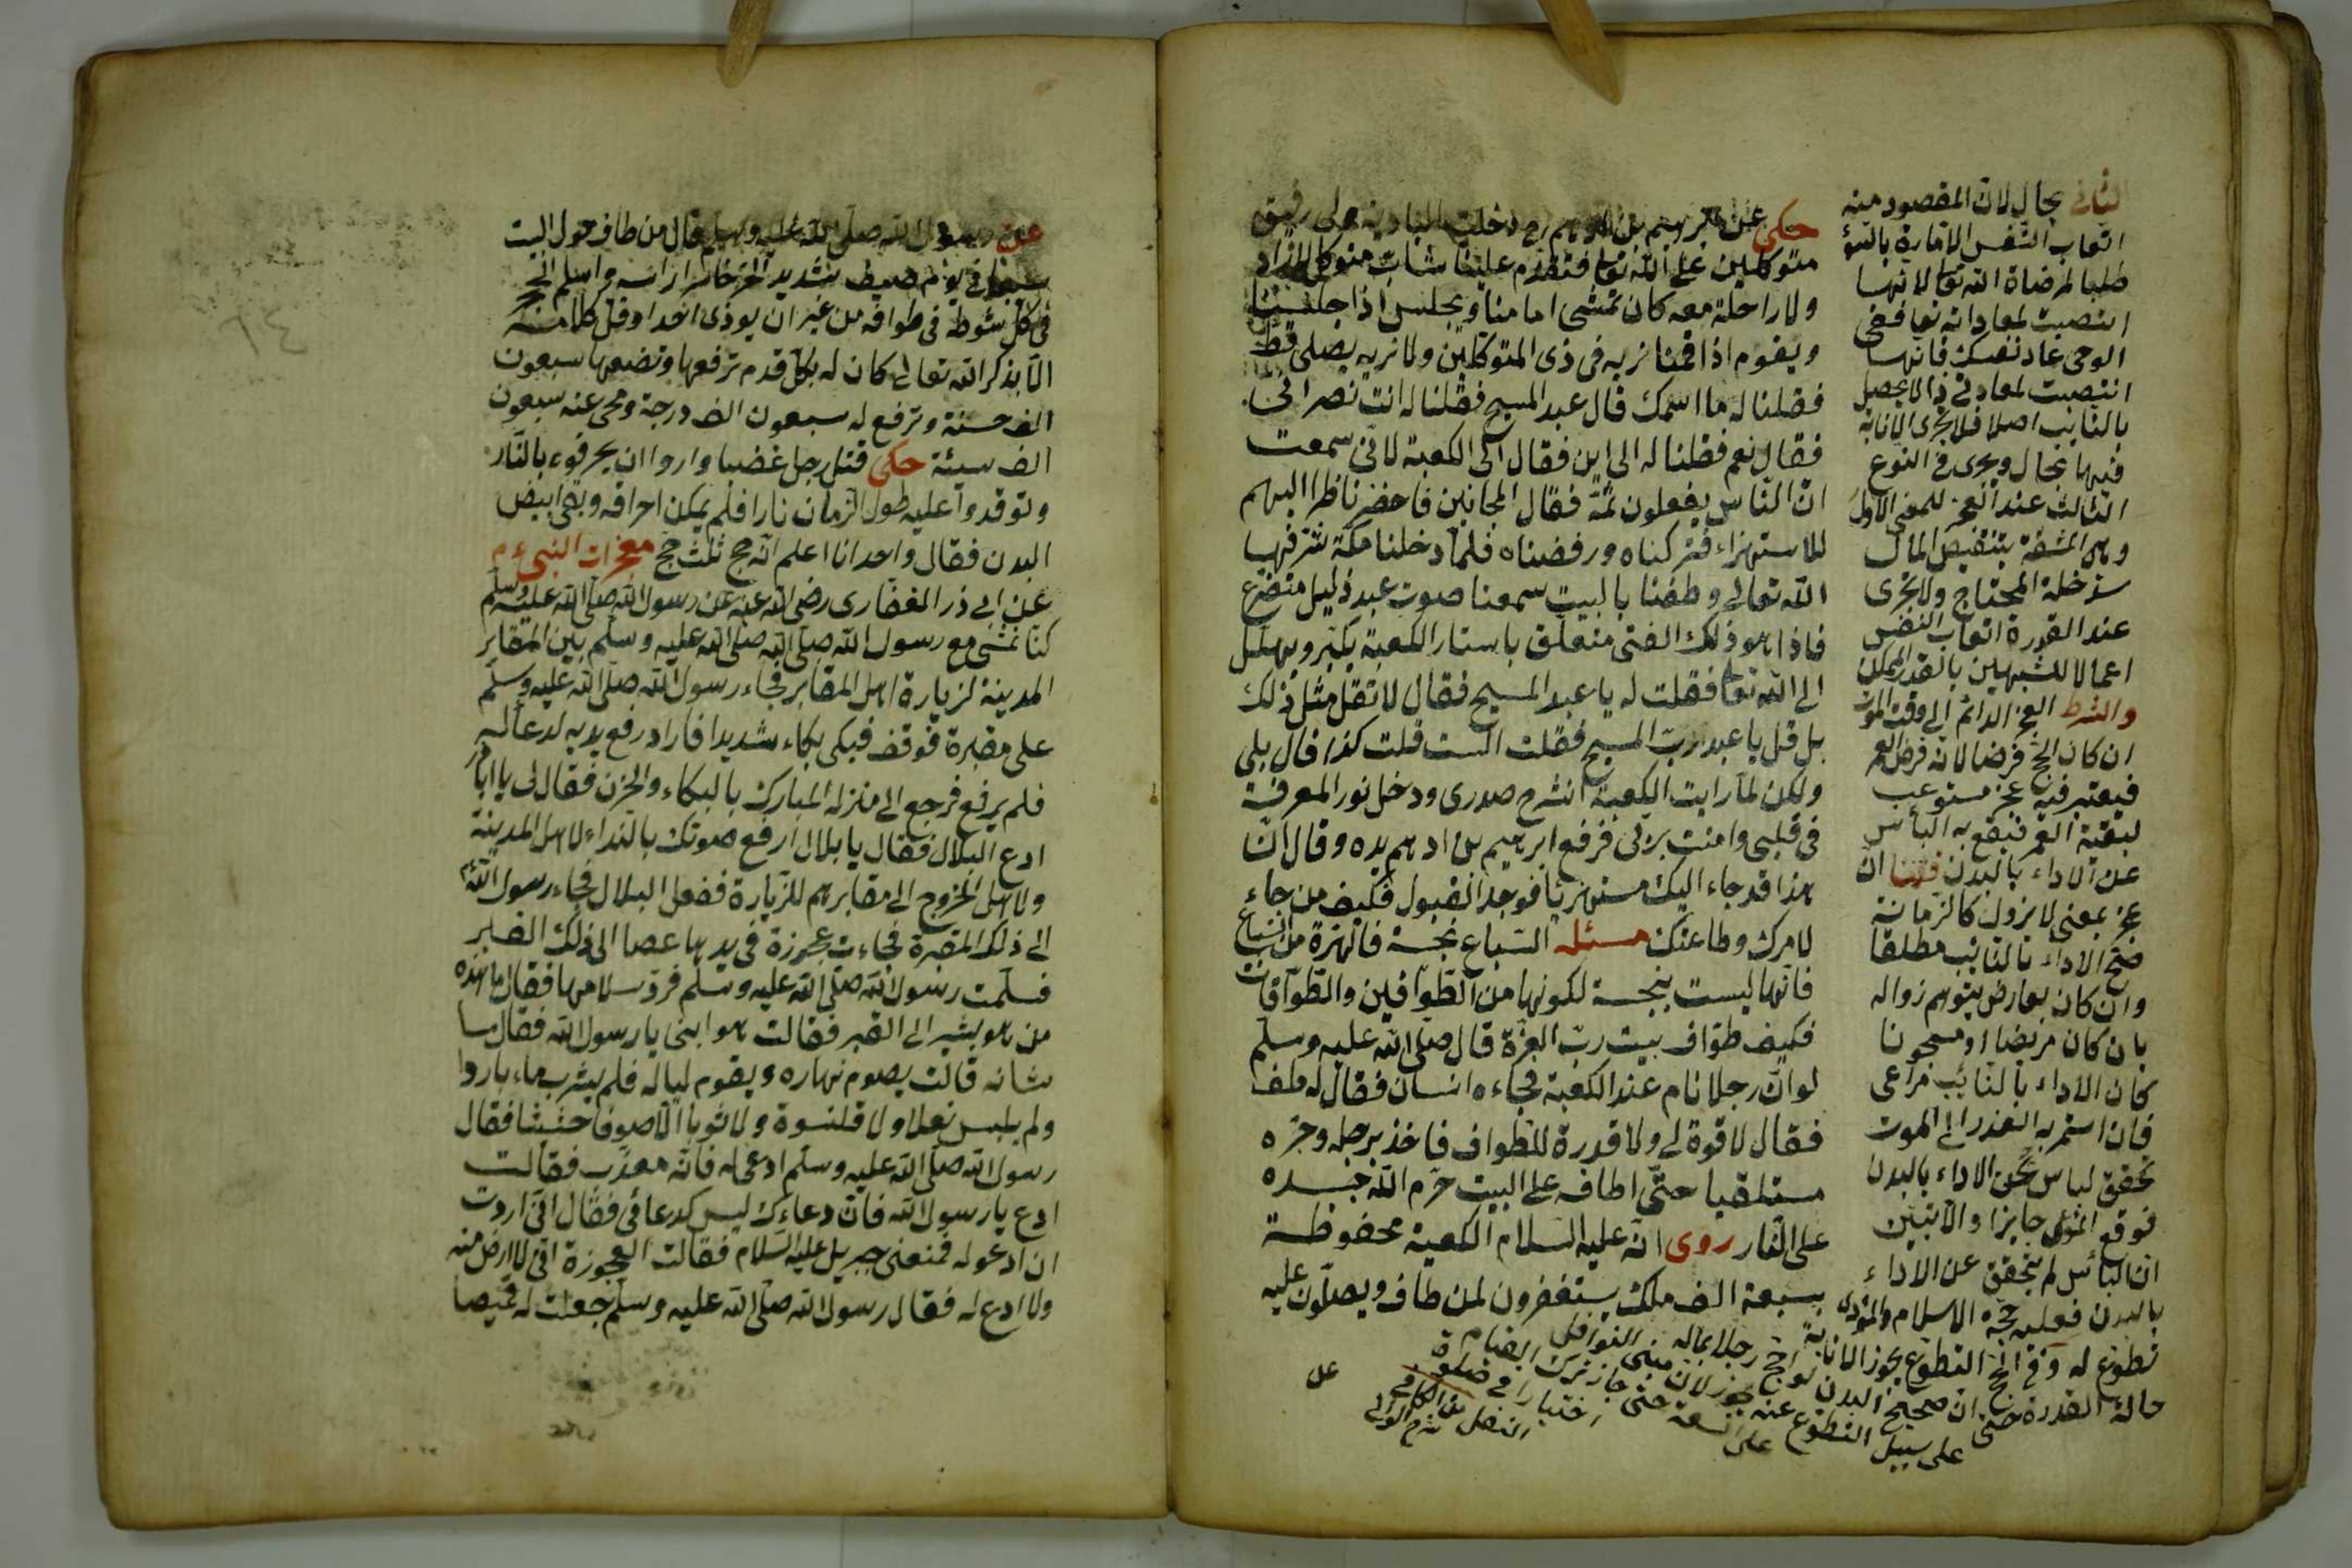 حكى عن ابرهيم بن ادهم رح دخلت البادية مع رفيق
متوكلين على الله تعا فتقدم علينا شاب متوكل لا زاد
ولا راحلة معه كان تمشى امامنا ويجلس اذا جلسنا
ويقوم اذا قمنا نريه فى ذى المتوكلين ولا نريه يصلى قط
فقلنا له ما اسمك قال عبد المسيح فقلنا له انت نصرانى
فقال نعم فقلنا له الى اين فقال الى الكعبة لانى سمعت
انّ النّاس يفعلون ثمّة فعال المجانين فاحضر ناظرا اليهم
للاستهزاء فتركناه ورفضناه فلمّا دخلنا مكة شرفها
اللّه تعالى وطفنا بالبيت سمعنا صوت عبد ذليل متضرع
فاذا هو ذلك الفتى متعلّق باستار الكعبة يكبّر ويهلّل
الى اللّه تعا فقلت له يا عبد المسيح فقال لا تقل مثل ذلك
بل قل يا عبد ربّ المسيح فقلت الست قلت كذا قال بلى
ولكن لمّا رايت الكعبة انشرح صدرى ودخل نور المعرفة
فى قلبى وامنت بربّى فرفع ابرهيم بن ادهم يده وقال انّ
هذا قد جاء اليك مستهزئا فوجد القبول فكيف من جاء
لامرك وطاعتك مسئله السّباع نجسة فالهرّة من السّباع
فانّها ليست بنجسة لكونها من الطّوّافين والطّوّافات
فكيف طوّاف بيت ربّ العزّة قال صلّى اللّه عليه وسلّم
لو انّ رجلا نام عند الكعبة فجاءه انسان فقال له طف
فقال لا قوة لى ولا قدرة للطواف فاخذ برجله وجرّه
مستلقيا حتّى اطافه على البيت حرّم اللّه جسده
على النّار روى انّه عليه السلام الكعبة محفوظة
بسبعة الف ملك يستغفرون لمن طاف ويصلّون عليه
الثانى بحال لان المقصود منه
اتعاب النفس الامارة بالسؤ
طلبا لمرضاة الله تعا لانها
انتصبت لمعاداته تعا ففى
الوحى عاد نفسك فانها
انتصبت لمعاداتى وذا لا يحصل
بالنايب اصلا فلا تجرى الانابة
فيها بحال وتجرى فى النوع
الثالث عند العجز للمعنى الاول
وهو المشقة بتنقيص المال
ولا تجرى
عند القدرة اتعاب النفس
اعمالا للشبهين بالقدر الممكن
والشرط العجز الدائم الى وقت الموت
ان كان الحج فرضا لانه فرض العمر
فيعتبر فيه عجز مستوعب
لبقية العمر فيقع به اليأس
عن الاداء بالبدن قلنا ان
عجز بمعنى لا يزول كالزمانة
صح الاداء بالنايب مطلقا
وان كان بعارض يتوهم زواله
بان كان مريضا او مسجونا
كان الاداء بالنائب مراعى
فان استمر به العذر الى الموت
تحقق اليأس عن الاداء بالبدن
فوقع المؤدى جايزا والا تبين
ان اليأس لم يتحقق عن الاداء
بالبدن فعليه حجة الاسلام والمؤدى
تطوع له وفى الحج التطوع يجوز الانابة
حالة القدرة حتى ان صحيح البدن لو احج رجلا بماله
على سبيل التطوع عنه يجوز لان مبنى النوافل
على السعة حتى جاز ترك القيام
اختيارا فى صلوة
النفل من الكافى
عن رسول الله صلّى اللّه عليه وسلم قال من طاف حول البيت
سبعا فى يوم صيف شديد الحر حاسرا راسه واستلم الحجر
فى كلّ شوطة فى طوافه من غير ان يوذى احدا وقلّ كلامه
الّا بذكر الله تعالى كان له بكلّ قدم ترفعها وتضعها سبعون
الف حسنة وترفع له سبعون الف درجة ومحى عنه سبعون
الف سيئة حكى قتل رجل غضبا واروا ان يحرقوه بالنّار
وتوقدوا عليه طول الزمان نارا فلم يمكن احراقه وبقى ابيض
البدن فقال واحد انا اعلم انّه حج ثلث حج معجزات النبىء م
عن ابى ذر الغفارى رضى اللّه عنه عن رسول اللّه صلّى اللّه عليه وسلّم
كنّا نمشى مع رسول اللّه صلّى اللّه صلّى اللّه عليه وسلّم بين المقابر
المدينة لزيارة اهل المقابر فجاء رسول اللّه صلّى اللّه عليه وسلّم
على مقبرة فوقف فبكى بكاء شديدا فاراد رفع يديه لدعائه
فلم يرفع فرجع الى منزله المبارك بالبكاء والحزن فقال لى يا ابا ذر
ادع البلال فقال يا بلال ارفع صوتك بالنداء لاهل المدينة
ولاهل الخروج الى مقابرهم للزّيارة ففعل البلال فجاء رسول اللّه م
الى ذلك المقبرة فجاءت عجوزة فى يديها عصا الى ذلك القبر
فسلّمت رسول اللّه صلّى اللّه عليه وسلّم فردّ سلامها فقال ما هذه
من هو يشير الى القبر فقالت هو ابنى يا رسول اللّه فقال ما
شانه قالت يصوم نهاره ويقوم لياله فلم يشرب ماء باردا
ولم يلبس نعلا ولا قلنسوة ولا ثوبا الّا صوفا خشيشا فقال
رسول اللّه صلّى اللّه عليه وسلّم ادعى له فانّه معذّب فقالت
ادع يا رسول اللّه فانّ دعاءك ليس كدعائى فقال انّى اردت
ان ادعو له فمنعنى جبريل عليه السّلام فقالت العجوزة انّى لا ارض منه
ولا ادع له فقال رسول اللّه صلّى اللّه عليه وسلّم جعلت له قميصا